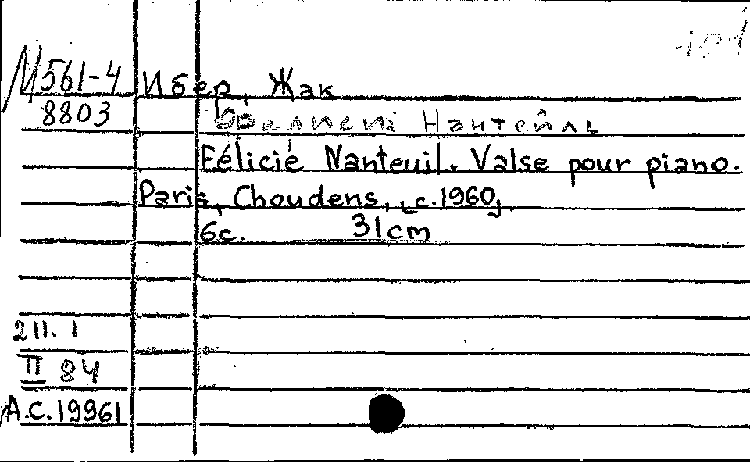 М561-4
8803
Ибер, Жак
Нантейль
Félicie Nanteuil. Valse pour piano.
Paris, Choudens, [c.1960].
6с. 31cm
2 II. 1
II 84
A.C.19961